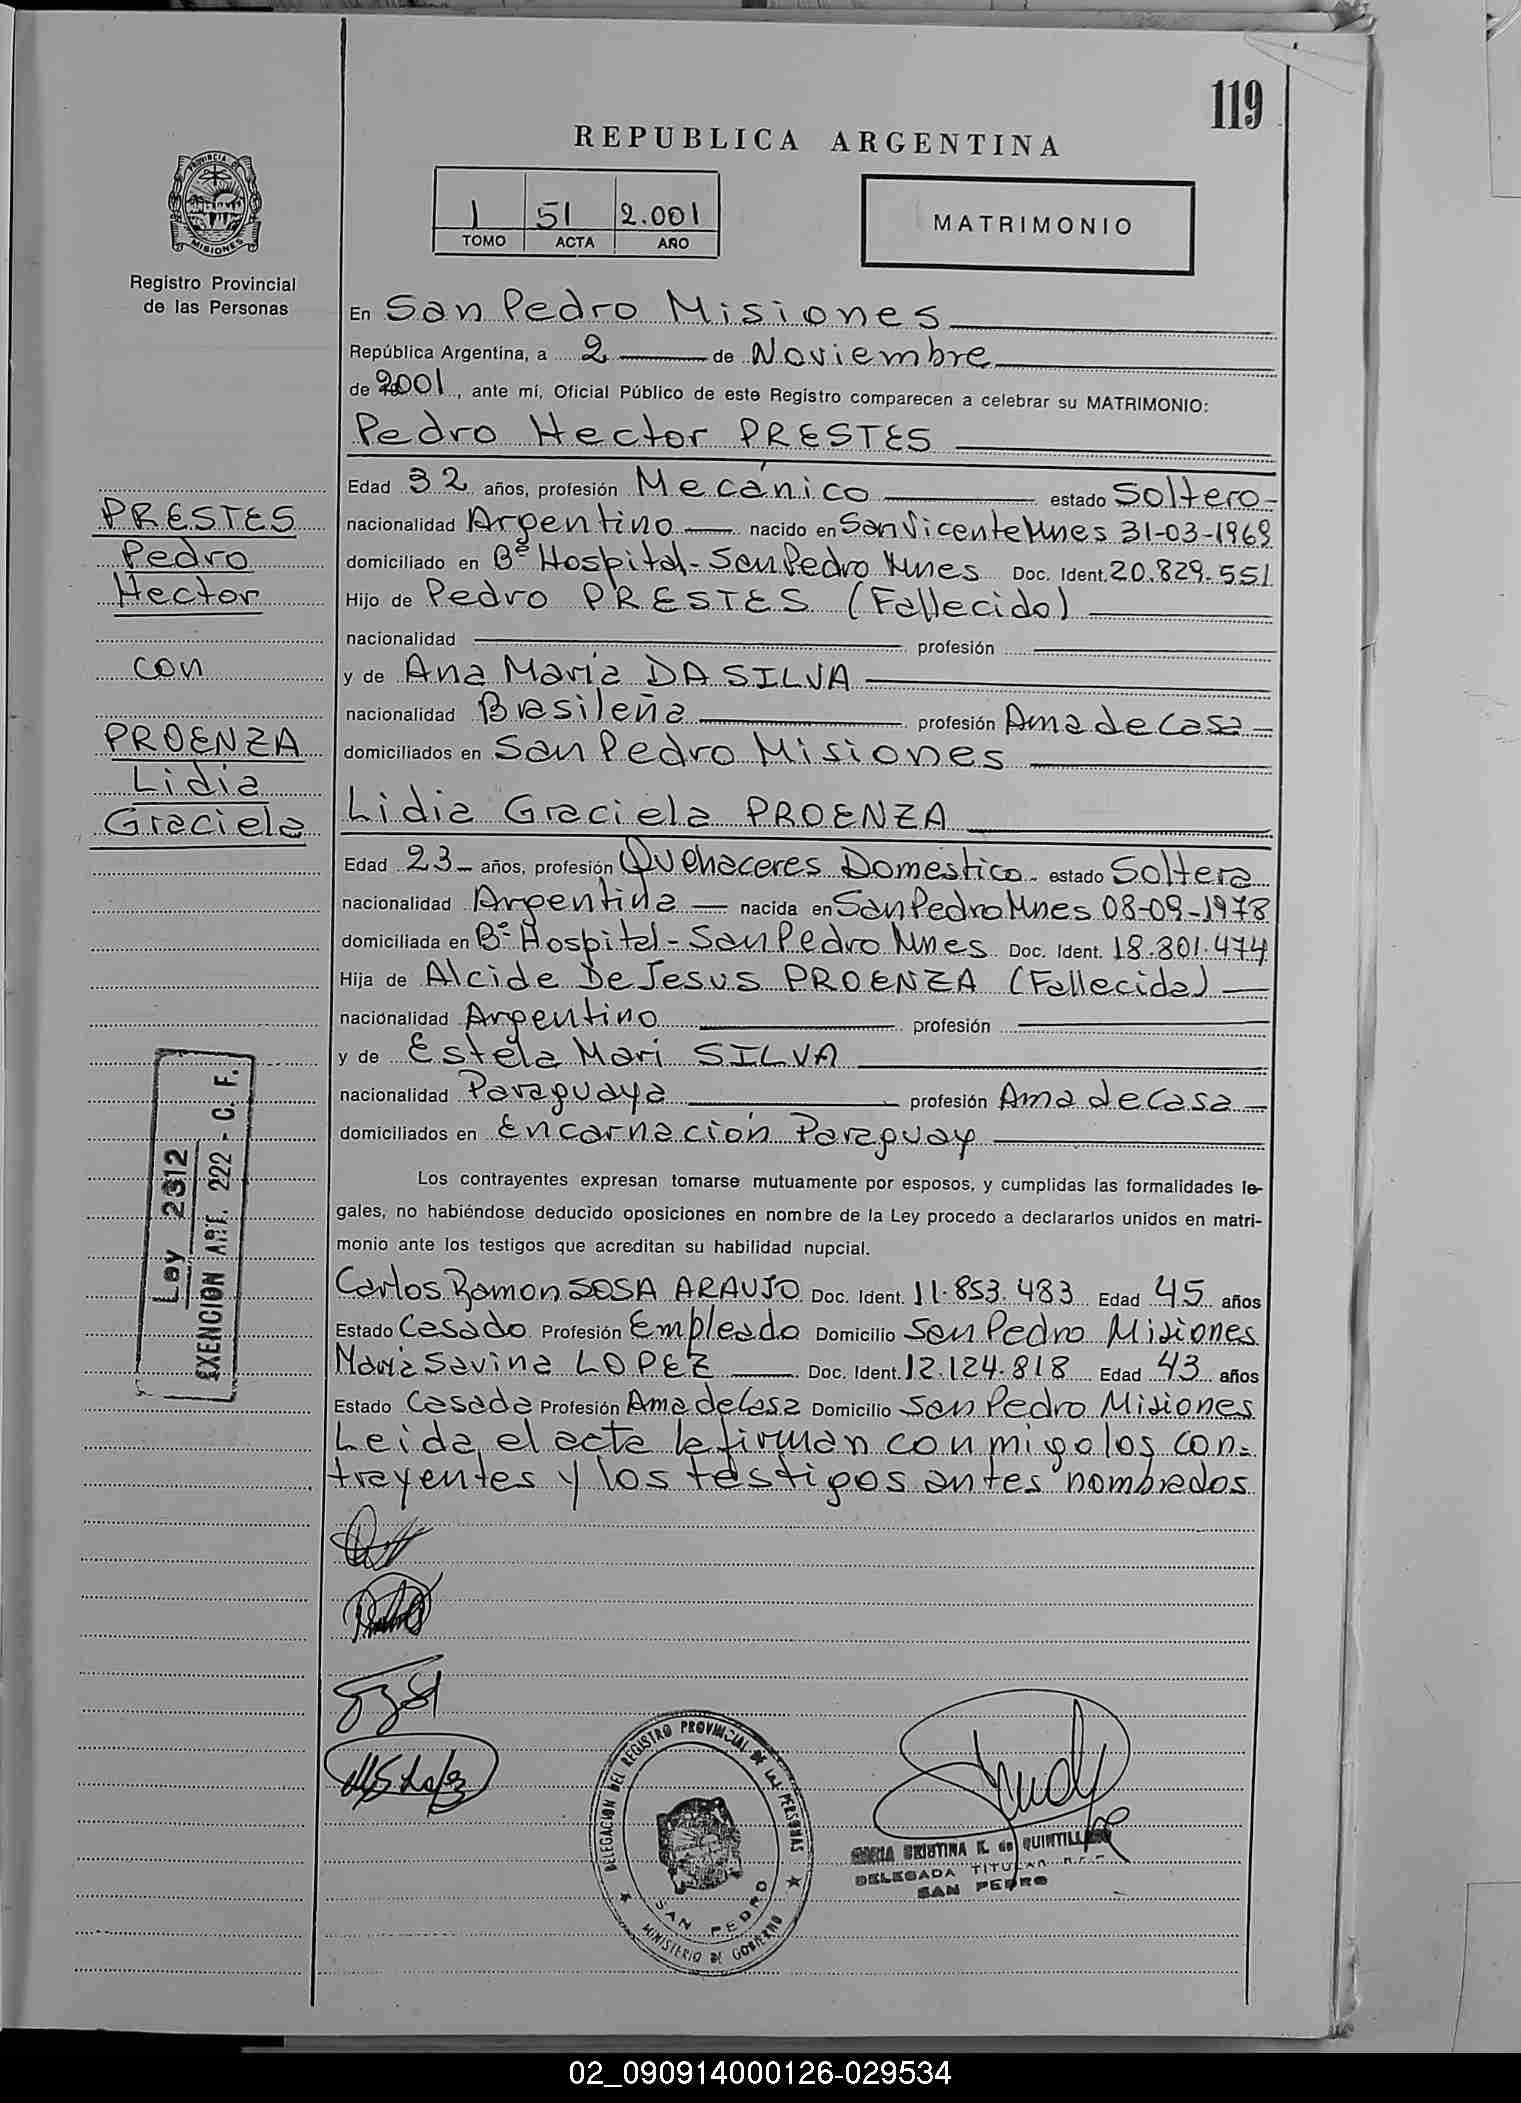 119
REPUBLICA ARGENTINA
1 51 2.001
TOMO ACTA AÑO
MATRIMONIO
PROVINCIA DE MISIONES
Registro Provincial
de las Personas
En San Pedro Misiones
República Argentina, a 2 de Noviembre
de 2001, ante mí, Oficial Público de este Registro comparecen a celebrar su MATRIMONIO:
Pedro Hector PRESTES
Edad 32 años, profesión Mecánico estado Soltero
nacionalidad Argentino nacido en San Vicente Mnes 31-03-1969
domiciliado en Bº Hospital - San Pedro Mnes Doc. Ident. 20.829.551
Hijo de Pedro PRESTES (Fallecido)
nacionalidad profesión
y de Ana María DA SILVA
nacionalidad Brasileña profesión Ama de Casa
domiciliados en San Pedro Misiones
PRESTES
Pedro
Hector
con
PROENZA
Lidia
Graciela
Lidia Graciela PROENZA
Edad 23 años, profesión Quehaceres Domestico estado Soltera
nacionalidad Argentina nacida en San Pedro Mnes 08-09-1978
domiciliada en Bº Hospital - San Pedro Mnes Doc. Ident. 18.801.474
Hija de Alcide De Jesus PROENZA (Fallecido)
nacionalidad Argentino profesión
y de Estela Mari SILVA
nacionalidad Paraguaya profesión Ama de Casa
domiciliados en Encarnación Paraguay
Ley 2312
EXENCION ART. 222 - C. F.
Los contrayentes expresan tomarse mutuamente por esposos, y cumplidas las formalidades le-
gales, no habiéndose deducido oposiciones en nombre de la Ley procedo a declararlos unidos en matri-
monio ante los testigos que acreditan su habilidad nupcial.
Carlos Ramon SOSA ARAUJO Doc. Ident. 11.853.483 Edad 45 años
Estado Casado Profesión Empleado Domicilio San Pedro Misiones
María Savina LOPEZ Doc. Ident. 12.124.818 Edad 43 años
Estado Casada Profesión Ama de Casa Domicilio San Pedro Misiones
Leida el acta la firman conmigo los con-
trayentes y los testigos antes nombrados
DELEGACION DEL REGISTRO PROVINCIAL DE LAS PERSONAS
SAN PEDRO
MINISTERIO DE GOBIERNO
MARIA CRISTINA K. de QUINTILLAN
DELEGADA TITULAR
SAN PEDRO
02_090914000126-029534